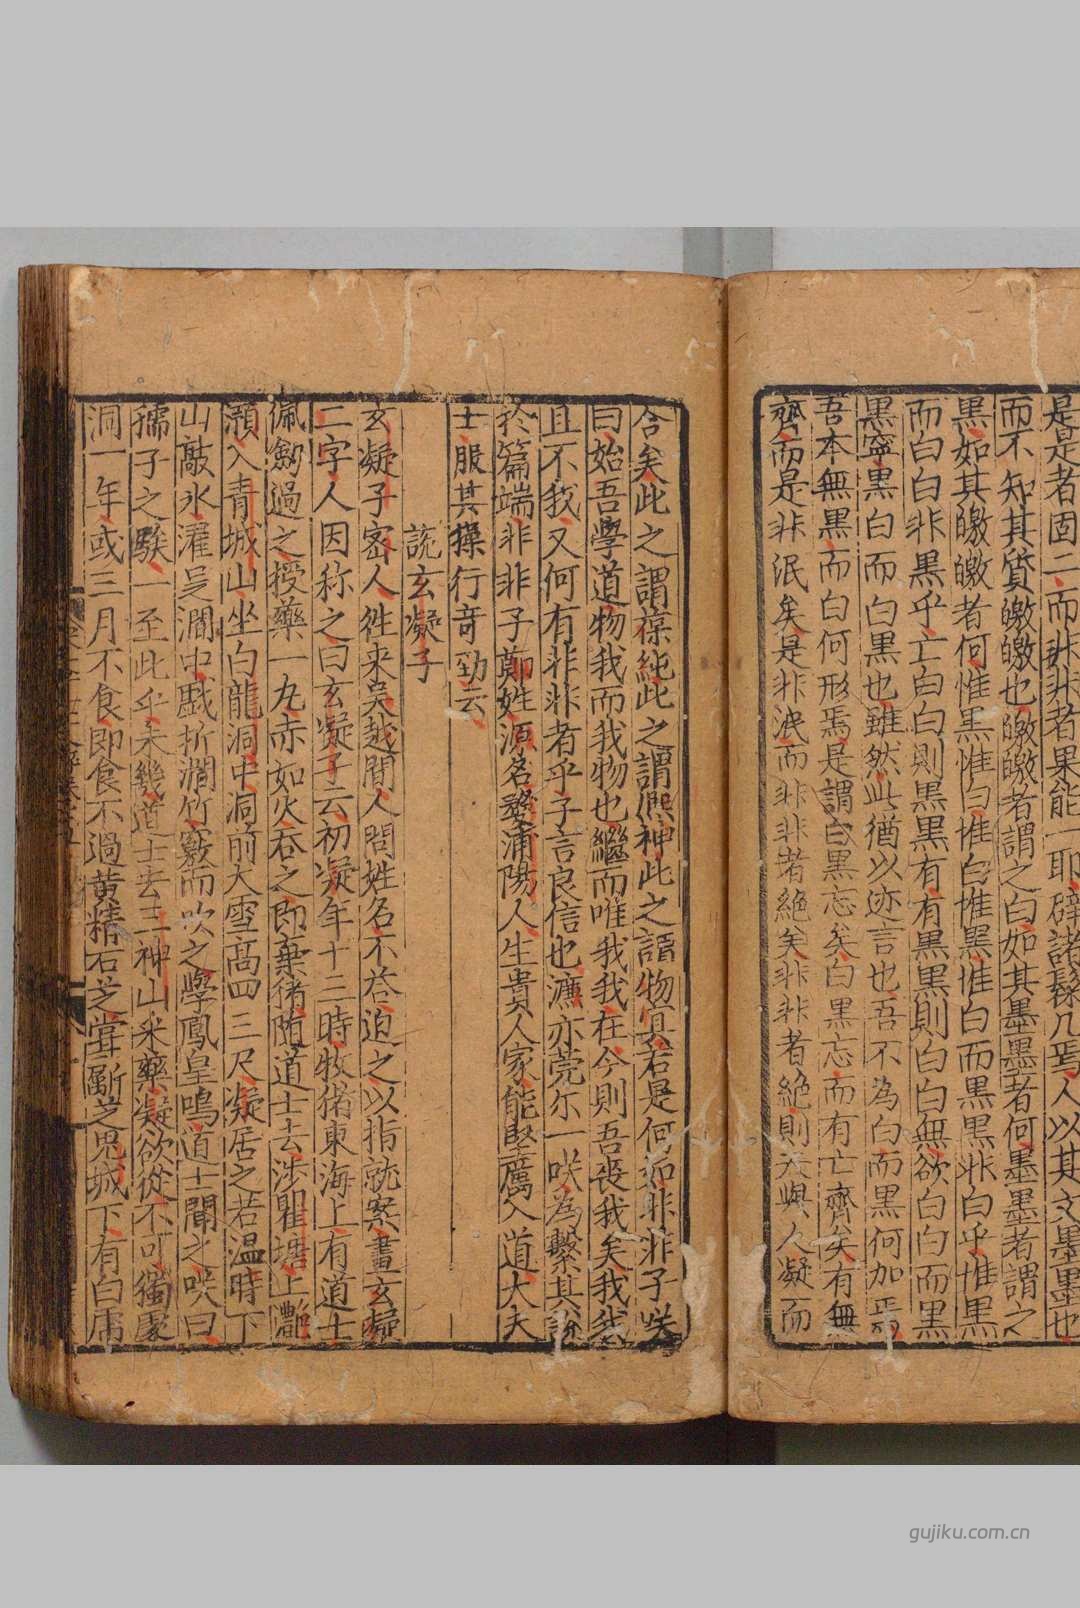 是是者固二而非非者果能一耶辟諸髹几焉人以其文墨墨也
而不知其質皦皦也皦皦者謂之白如其墨墨者何墨墨者謂之
黒如其皦皦者何惟黒惟白惟白惟黒惟白而黒黒非白乎惟黒
而白白非黒乎亡白白則黒黒有有黒黒則白白無欲白白而黒
黒寧黒白而白黒也雖然此猶以迹言也吾不為白而黒何加焉
吾本無黒而白何形焉是謂白黒忘矣白黒忘而有亡齊矣有無
齊而是非泯矣是非泯而非非者絶矣非非者絶則天與人凝而
合矣此之謂葆純此之謂熈神此之謂物冥若是何如非非子咲
曰始吾學道物我而我物也繼而唯我我在今則吾喪我矣我我
且不我又何有非非者乎子言良信也濂亦莞尔一咲為繫其說
於篇端非非子鄭姓源名婺浦陽人生貴人家能堅厲入道大夫
士服其操行竒勁云
說玄凝子
玄凝子宻人徃来吳越間人問姓名不荅迫之以指就案畫玄凝
二字人因称之曰玄凝子云初凝年十三時牧猪東海上有道士
佩劎過之授藥一丸赤如火吞之即棄猪随道士去涉瞿塘上灧
澦入青城山坐白龍洞中洞前大雪高四三尺凝居之若温時下
山敲氷濯足澗中戯折澗竹竅而吹之學鳳皇鳴道士聞之咲曰
孺子之騃一至此乎未幾道士去三神山采藥凝欲從不可獨處
洞一年或三月不食即食不過黄精石芝嘗斸芝鬼城下有白虎
gujiku.com.cn